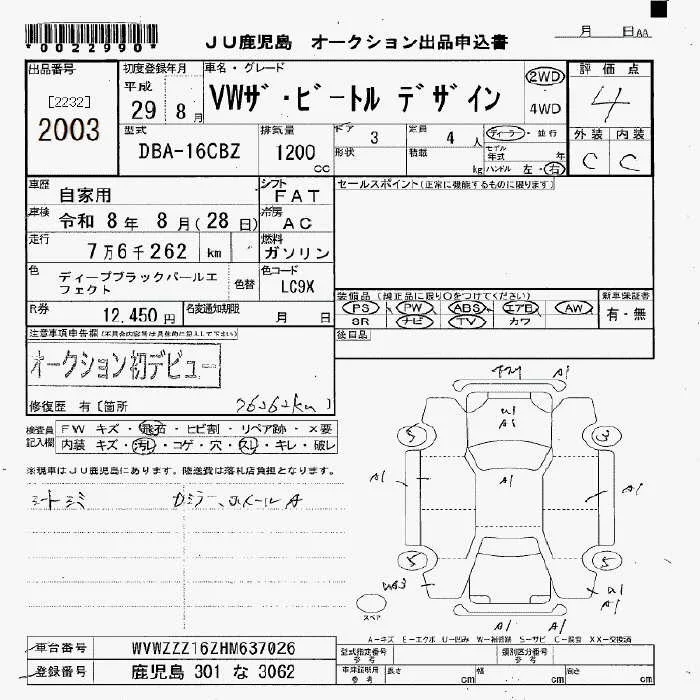 *0022990*
JU鹿児島 オークション出品申込書
月 日AA
出品番号
[2232]
2003
初度登録年月
平成
29 8 月
車名・グレード
VWザ・ビートル デザイン
2WD
4WD
評価点
4
型式
DBA-16CBZ
排気量
1200
cc
ドア 3
定員 4 人
形状
積載 kg
ディーラー・並行
モデル年式 年
ハンドル 左・右
外装 内装
C C
車歴 自家用
シフト FAT
セールスポイント(正常に機能するものに限ります)
車検 令和 8年 8月(28日)
冷房 AC
走行 7万6千262 km
燃料 ガソリン
色 ディープブラックパールエフェクト
色替
色コード LC9X
装備品(純正品に限り○をつけてください)
新車保証書
PS PW ABS エアB AW
SR ナビ TV カワ
有・無
R券 12,450円
名変通知期限 月 日
後日品
注意事項申告欄
オークション初デビュー
修復歴 有[箇所
76262km
検査員記入欄
FW キズ・飛石・ヒビ割・リペア跡・×要
内装 キズ・汚レ・コゲ・穴・スレ・キレ・破レ
※現車はJU鹿児島にあります。陸送費は落札店負担となります。
A1
U1
A1
5
3
A1
A1
A1
5
5
A1
A1
A1
スペア
A-キズ E-エクボ U-凹み W-補修跡 S-サビ C-腐食 XX-交換済
車台番号 WVWZZZ16ZHM637026
登録番号 鹿児島 301 な 3062
型式指定番号 参考
類別区分番号 参考
車庫証明用 参考
長さ cm
幅 cm
高さ cm